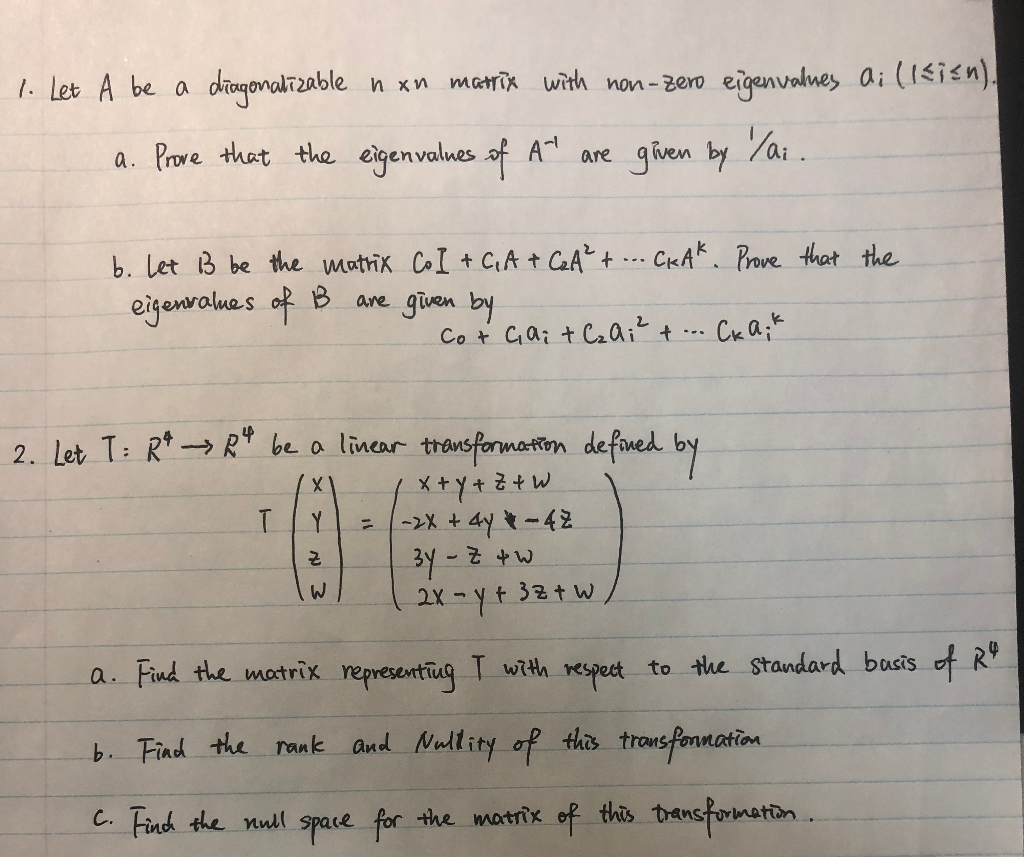 1. Let A be a diagonalizable n x n matrix with non-zero eigenvalues aᵢ (1≤i≤n).
a. Prove that the eigenvalues of A⁻¹ are given by 1/aᵢ.
b. Let B be the matrix C₀I + C₁A + C₂A² + ... CₖAᵏ. Prove that the
eigenvalues of B are given by
C₀ + C₁aᵢ + C₂aᵢ² + ... Cₖaᵢᵏ
2. Let T: R⁴ → R⁴ be a linear transformation defined by
T (X Y Z W) = (X + y + Z + W
-2X + 4y - 4Z
3y - Z + W
2X - y + 3Z + W)
a. Find the matrix representing T with respect to the standard basis of R⁴
b. Find the rank and Nullity of this transformation
C. Find the null space for the matrix of this transformation.